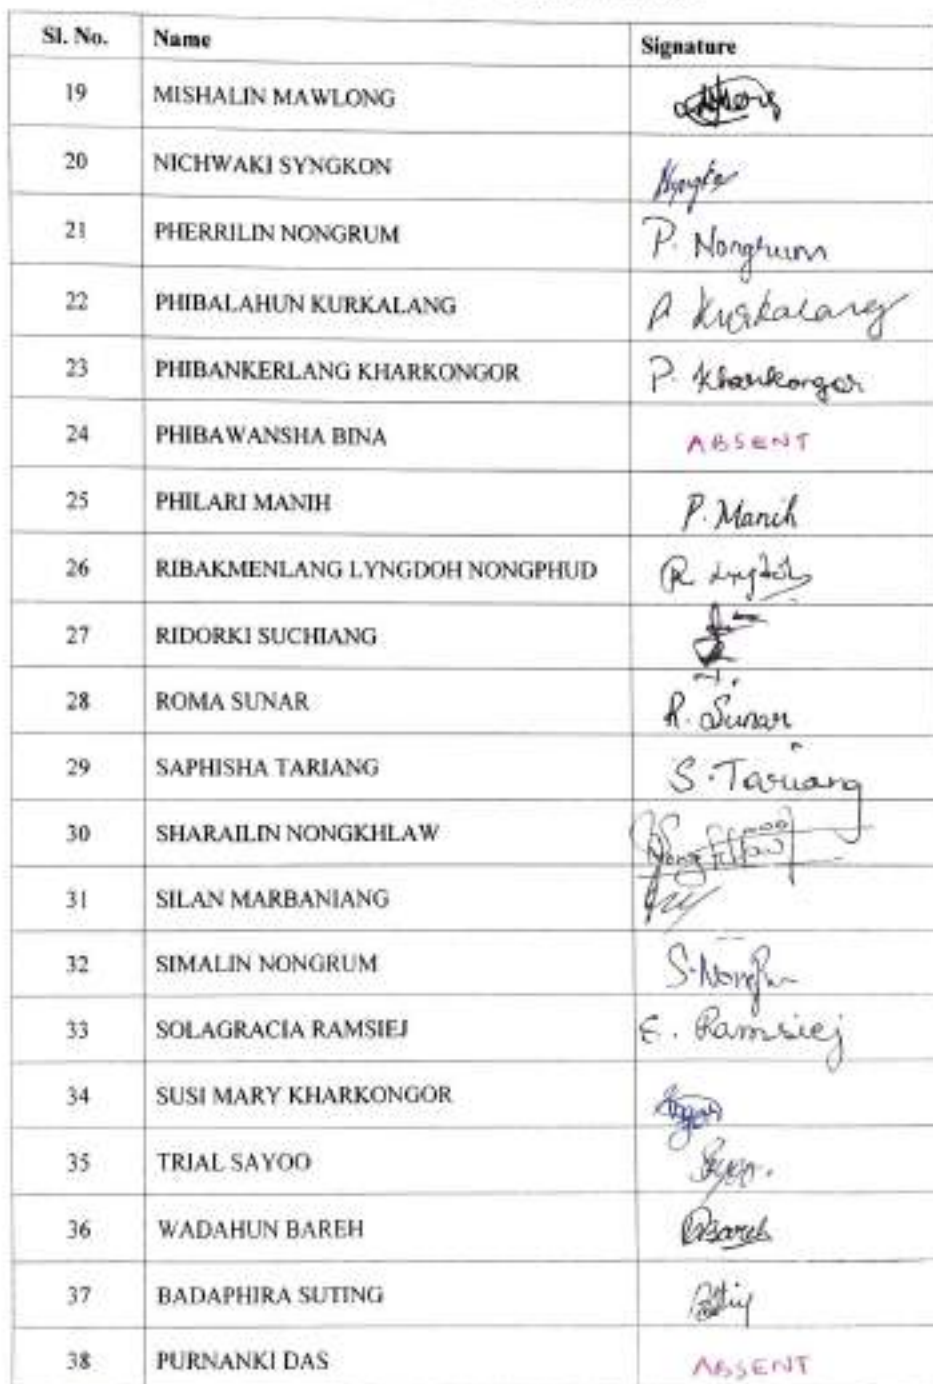 Sl. No. Name Signature
19 MISHALIN MAWLONG
20 NICHWAKI SYNGKON
21 PHERRILIN NONGRUM P. Nongrum
22 PHIBALAHUN KURKALANG P Kurkalang
23 PHIBANKERLANG KHARKONGOR P. Kharkongor
24 PHIBAWANSHA BINA ABSENT
25 PHILARI MANIH P. Manih
26 RIBAKMENLANG LYNGDOH NONGPHUD R Lyngdoh
27 RIDORKI SUCHIANG
28 ROMA SUNAR R. Sunar
29 SAPHISHA TARIANG S. Tariang
30 SHARAILIN NONGKHLAW
31 SILAN MARBANIANG
32 SIMALIN NONGRUM
33 SOLAGRACIA RAMSIEJ E. Ramsiej
34 SUSI MARY KHARKONGOR
35 TRIAL SAYOO
36 WADAHUN BAREH
37 BADAPHIRA SUTING
38 PURNANKI DAS ABSENT